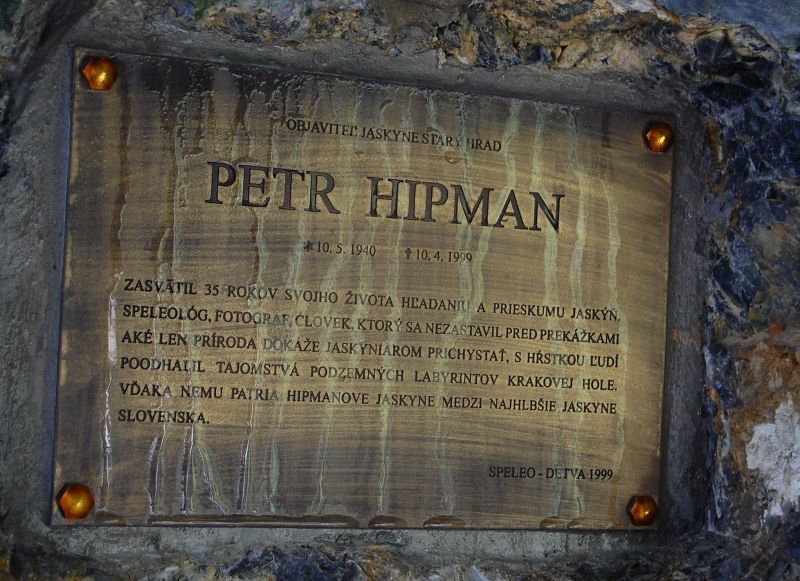 OBJAVITEĽ JASKYNE STARÝ HRAD
PETR HIPMAN
* 10. 5. 1940 † 10. 4. 1999
ZASVÄTIL 35 ROKOV SVOJHO ŽIVOTA HĽADANIU A PRIESKUMU JASKÝŇ.
SPELEOLÓG, FOTOGRAF, ČLOVEK, KTORÝ SA NEZASTAVIL PRED PREKÁŽKAMI
AKÉ LEN PRÍRODA DOKÁŽE JASKYNIAROM PRICHYSTAŤ, S HŔSTKOU ĽUDÍ
POODHALIL TAJOMSTVÁ PODZEMNÝCH LABYRINTOV KRAKOVEJ HOLE.
VĎAKA NEMU PATRIA HIPMANOVE JASKYNE MEDZI NAJHLBŠIE JASKYNE
SLOVENSKA.
SPELEO - DETVA 1999